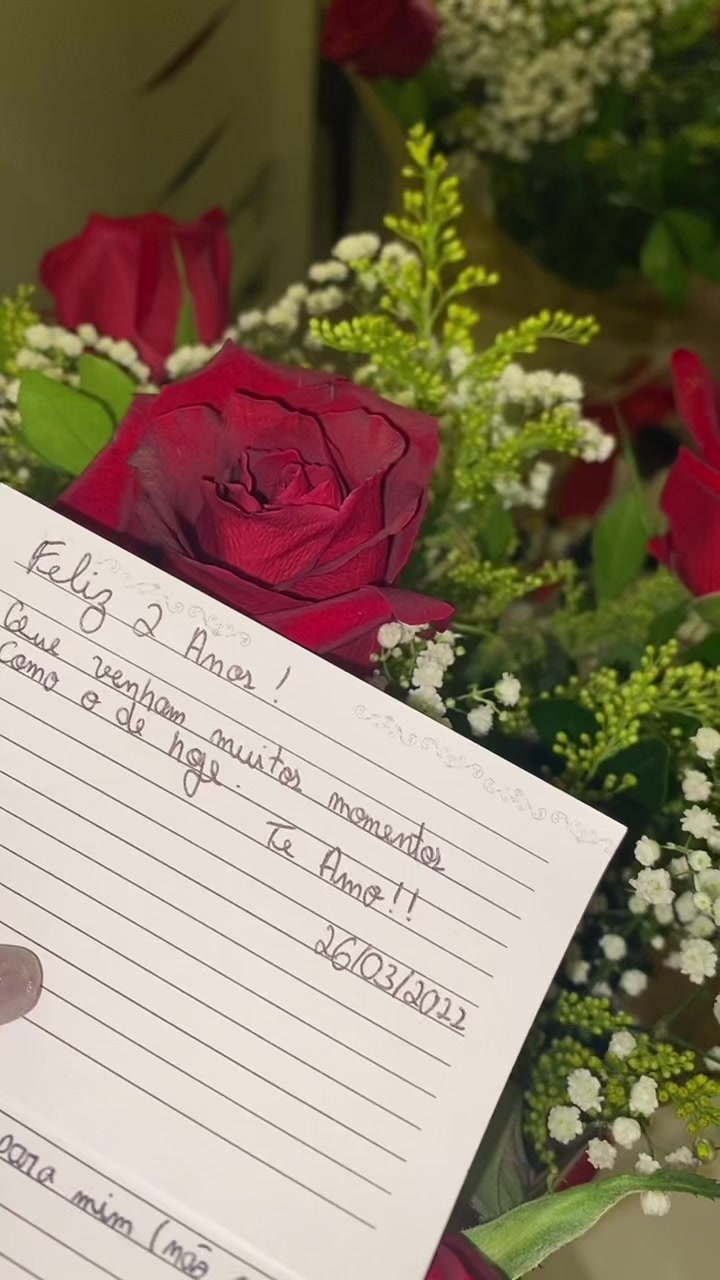 Feliz 2 Anos!
Que venham muitos momentos
Como o de hoje.
Te Amo!!
26/03/2022
para mim (não